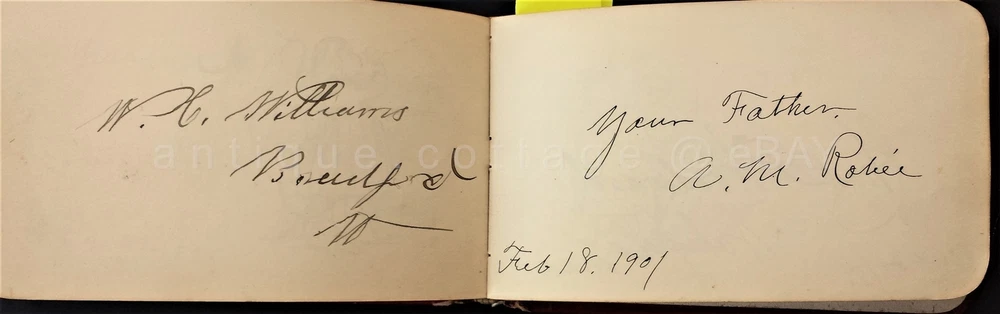 W. H. Williams
Bradford
Vt
Your Father.
A. M. Robie
Feb 18. 1901
antique cottage @ eBAY